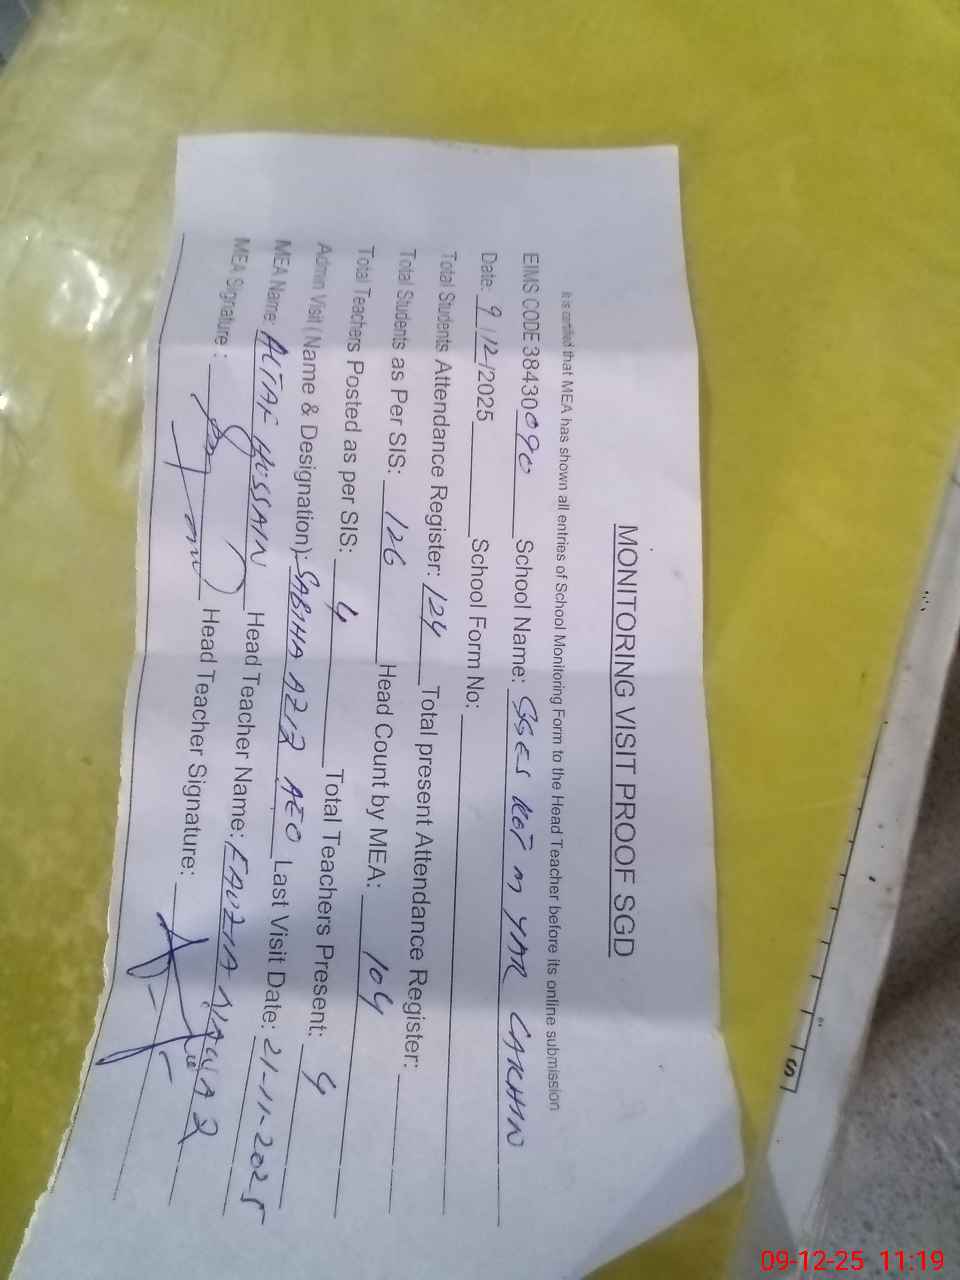 MONITORING VISIT PROOF SGD
It is certified that MEA has shown all entries of School Monitoring Form to the Head Teacher before its online submission
EIMS CODE 38430090 School Name: GGES KOT M YAR
Date: 9/12/2025 School Form No:
Total Students Attendance Register: 124 Total present Attendance Register:
Total Students as Per SIS: 126 Head Count by MEA: 104
Total Teachers Posted as per SIS: 4 Total Teachers Present: 4
Admin Visit (Name & Designation): SABIHA AZIZ AEO Last Visit Date: 21-11-2025
MEA Name: ALTAF HUSSAIN Head Teacher Name: FAUZIA
MEA Signature : Head Teacher Signature:
S
09-12-25 11:19